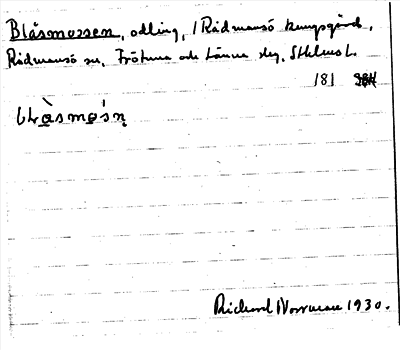 Blåsmossen, odling, 1 Rådmansö kungsgård,
Rådmansö sn, Frötuna och Länna skg, Sthlms l.
181
Richard Norrman 1930.